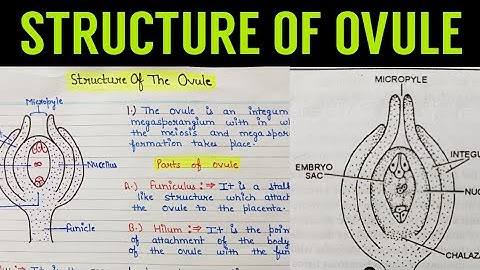 STRUCTURE OF OVULE
Structure Of The Ovule
Micropyle
Nucellus
Funicle
1.) The ovule is an integum
megasporangium with in w
the meiosis and megaspor
formation takes place.
Parts of ovule
A.) Funiculus :⇒ It is a stalk
like structure which attac
the ovule to the placenta.
B.) Hilum :⇒ It is the poin
of attachment of the body
of the ovule with the fun
MICROPYLE
INTEGU
EMBRYO
SAC
NU
CHALAZ